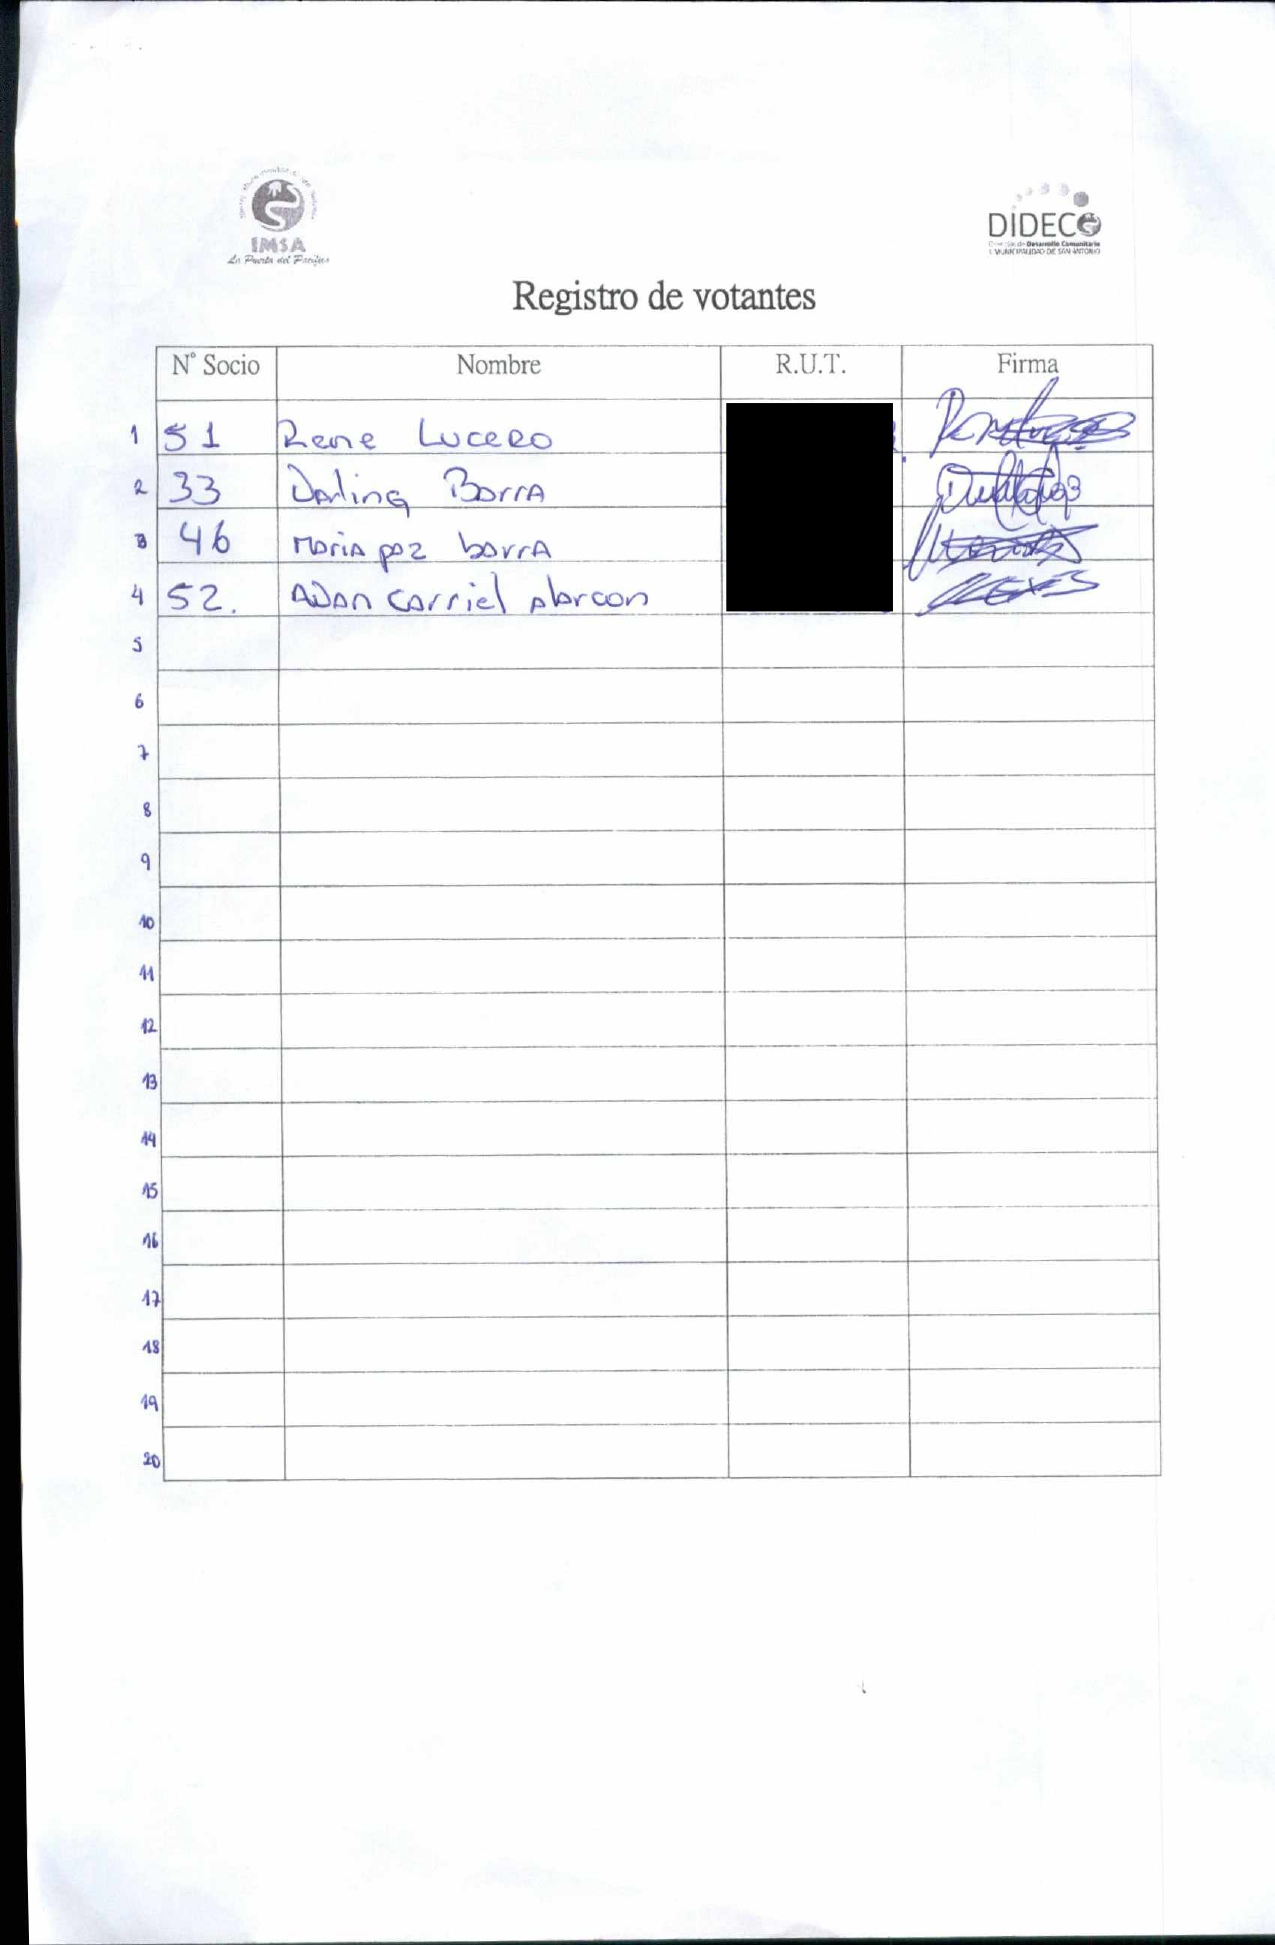 IMSA
La Puerta del Pacífico
DIDECO
Dirección de Desarrollo Comunitario
I. MUNICIPALIDAD DE SAN ANTONIO
Registro de votantes
N° Socio Nombre R.U.T. Firma
1 51 Rene Lucero
2 33 Darling Borra
3 46 Maria paz borra
4 52. Adan Carriel Alarcon
5
6
7
8
9
10
11
12
13
14
15
16
17
18
19
20